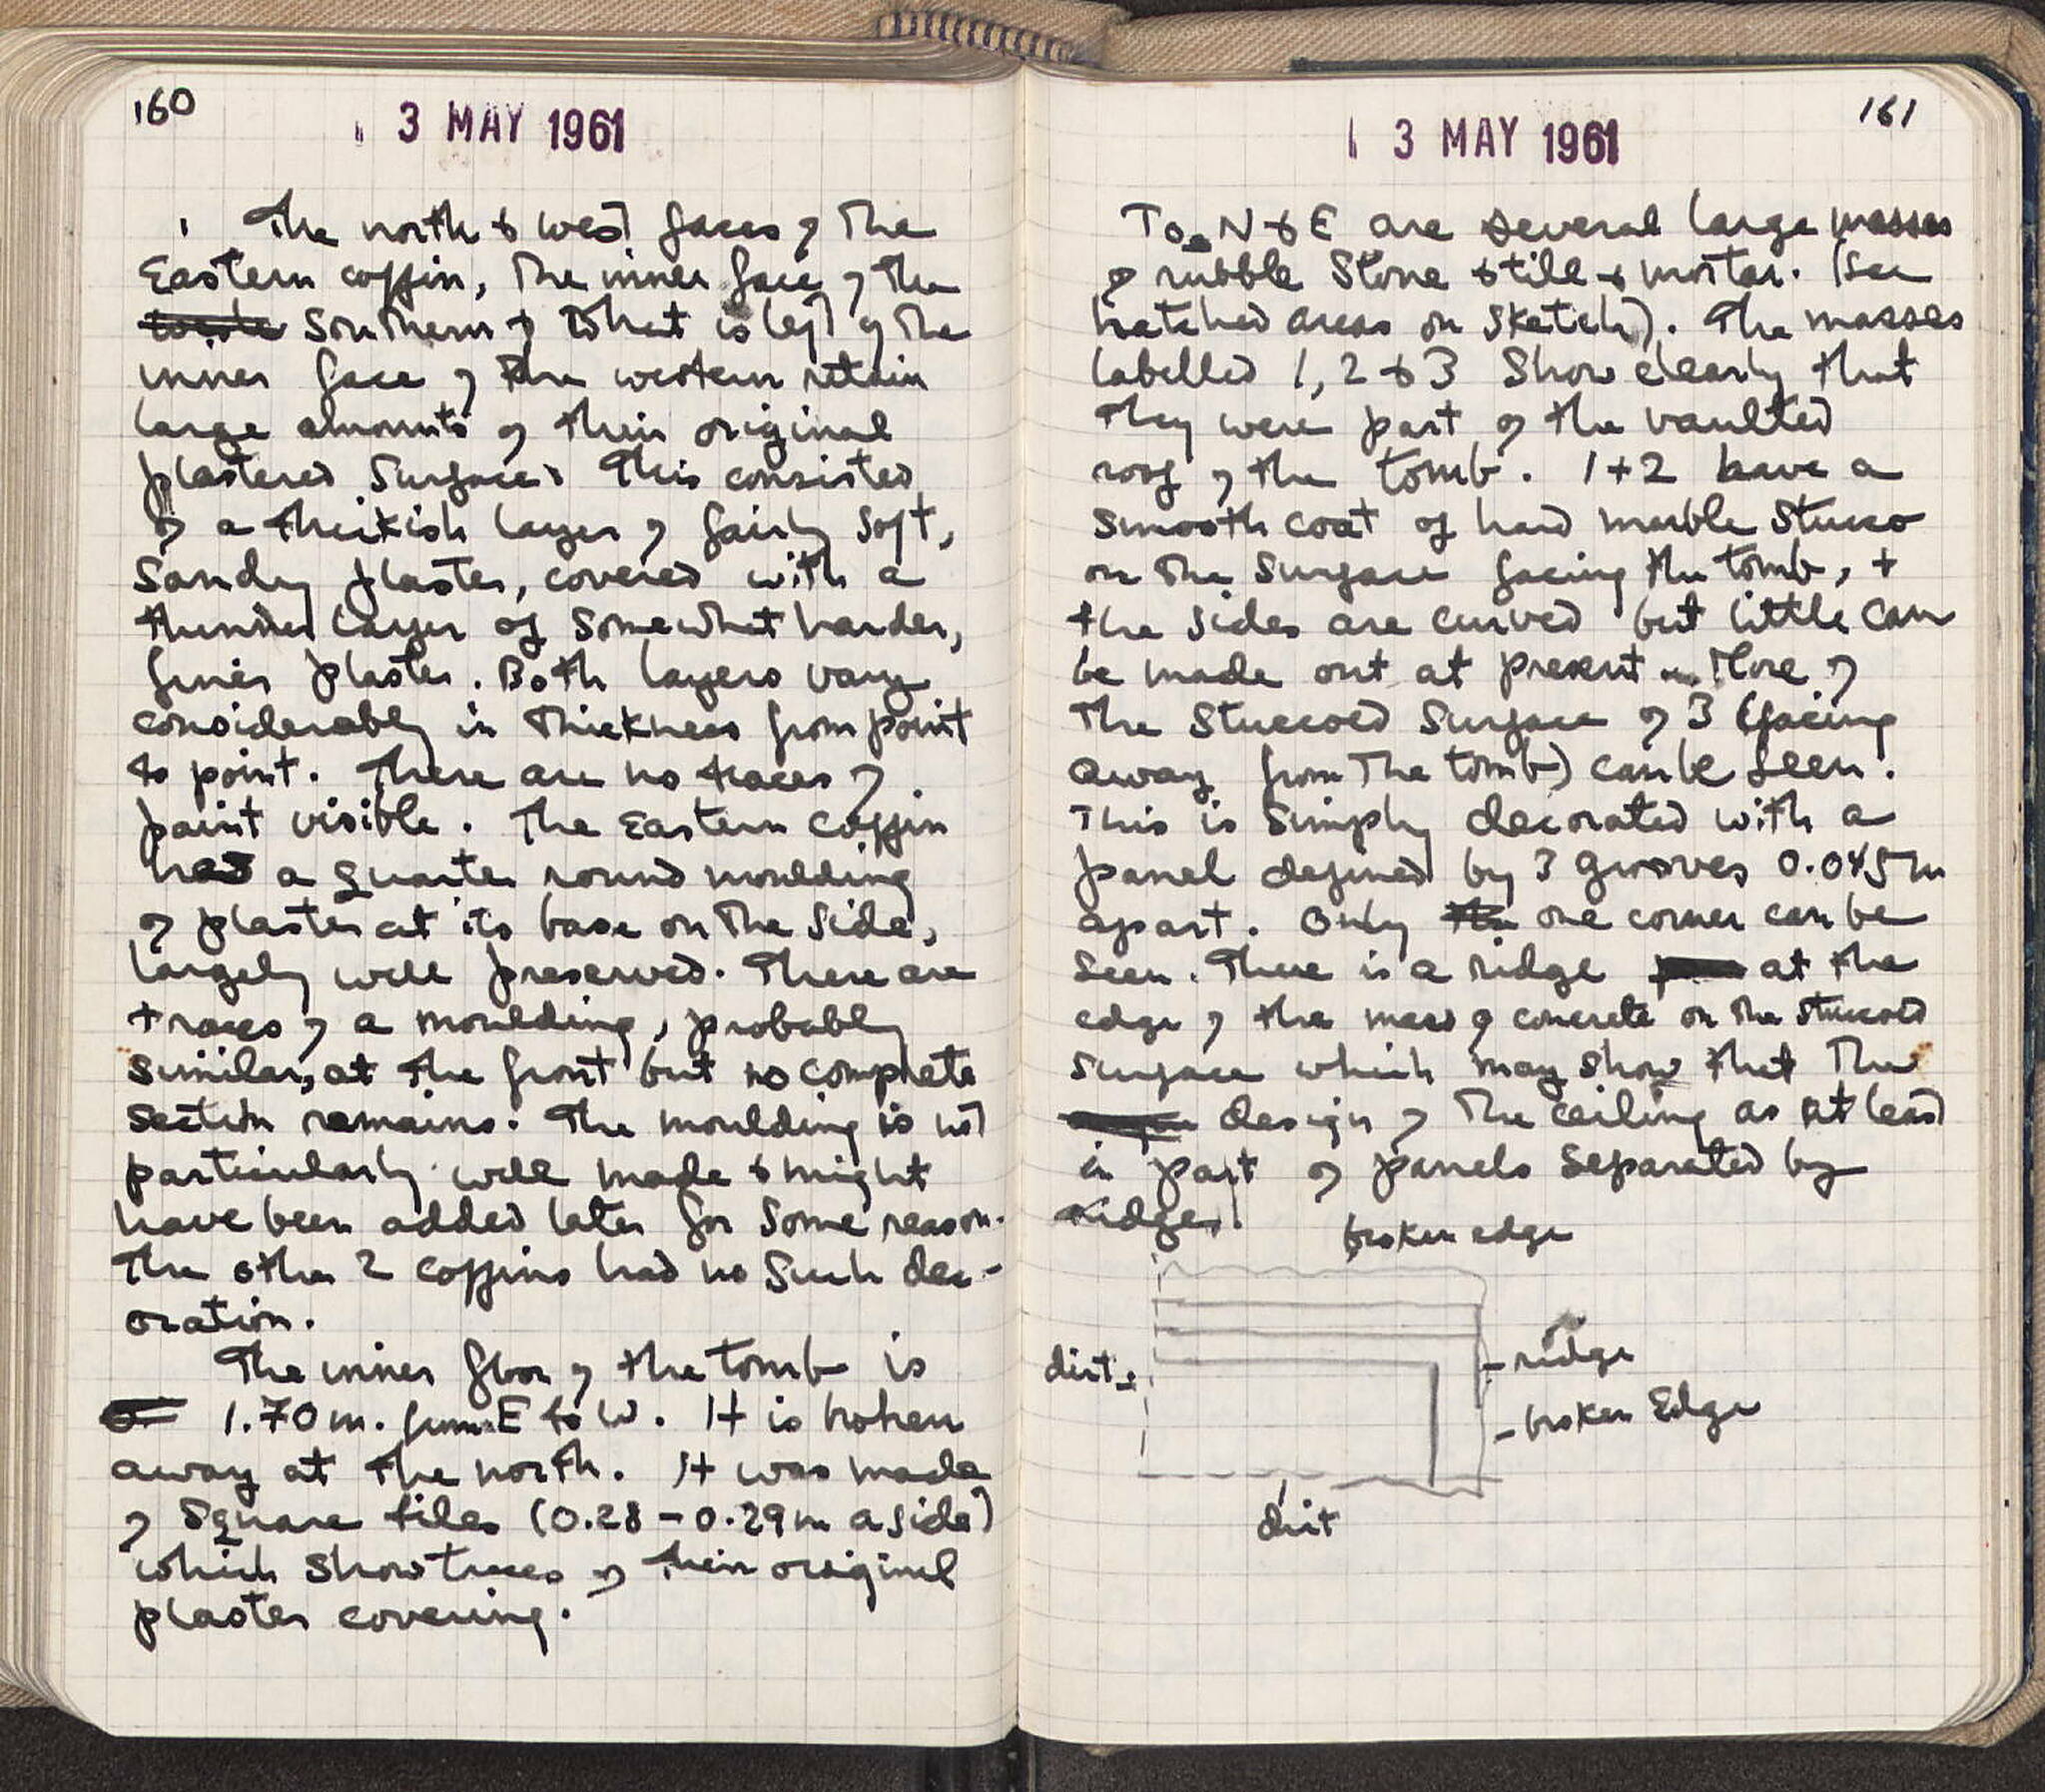 160
3 MAY 1961
The north & west faces of the
Eastern coffin, the inner face of the
Southern & what is left of the
inner face of the western retain
large amounts of their original
plastered surface. This consisted
of a thickish layer of fairly soft,
sandy plaster, covered with a
thinner layer of somewhat harder,
finer plaster. Both layers vary
considerably in thickness from point
to point. There are no traces of
paint visible. The Eastern coffin
has a quarter round moulding
of plaster at its base on the side,
largely well preserved. There are
traces of a moulding, probably
similar, at the front but no complete
section remains. The moulding is not
particularly well made & might
have been added later for some reason.
The other 2 coffins had no such dec-
oration.
The inner floor of the tomb is
1.70 m. from E to W. It is broken
away at the north. It was made
of square tiles (0.28 - 0.29m a side)
which show traces of their original
plaster covering.
161
13 MAY 1961
To N & E are several large masses
of rubble stone & tile & mortar. (See
hatched areas on sketch). The masses
labelled 1, 2 & 3 show clearly that
they were part of the vaulted
roof of the tomb. 1 + 2 have a
smooth coat of hard marble stucco
on the surface facing the tomb, +
the sides are curved but little can
be made out at present. More of
the stuccoed surface of 3 (facing
away from the tomb) can be seen.
This is simply decorated with a
panel defined by 3 grooves 0.045m
apart. Only one corner can be
seen. There is a ridge at the
edge of the mass of concrete on the stuccoed
surface which may show that the
design of the ceiling as at least
in part of panels separated by
ridges.
broken edge
dirt
- ridge
- broken Edge
dirt